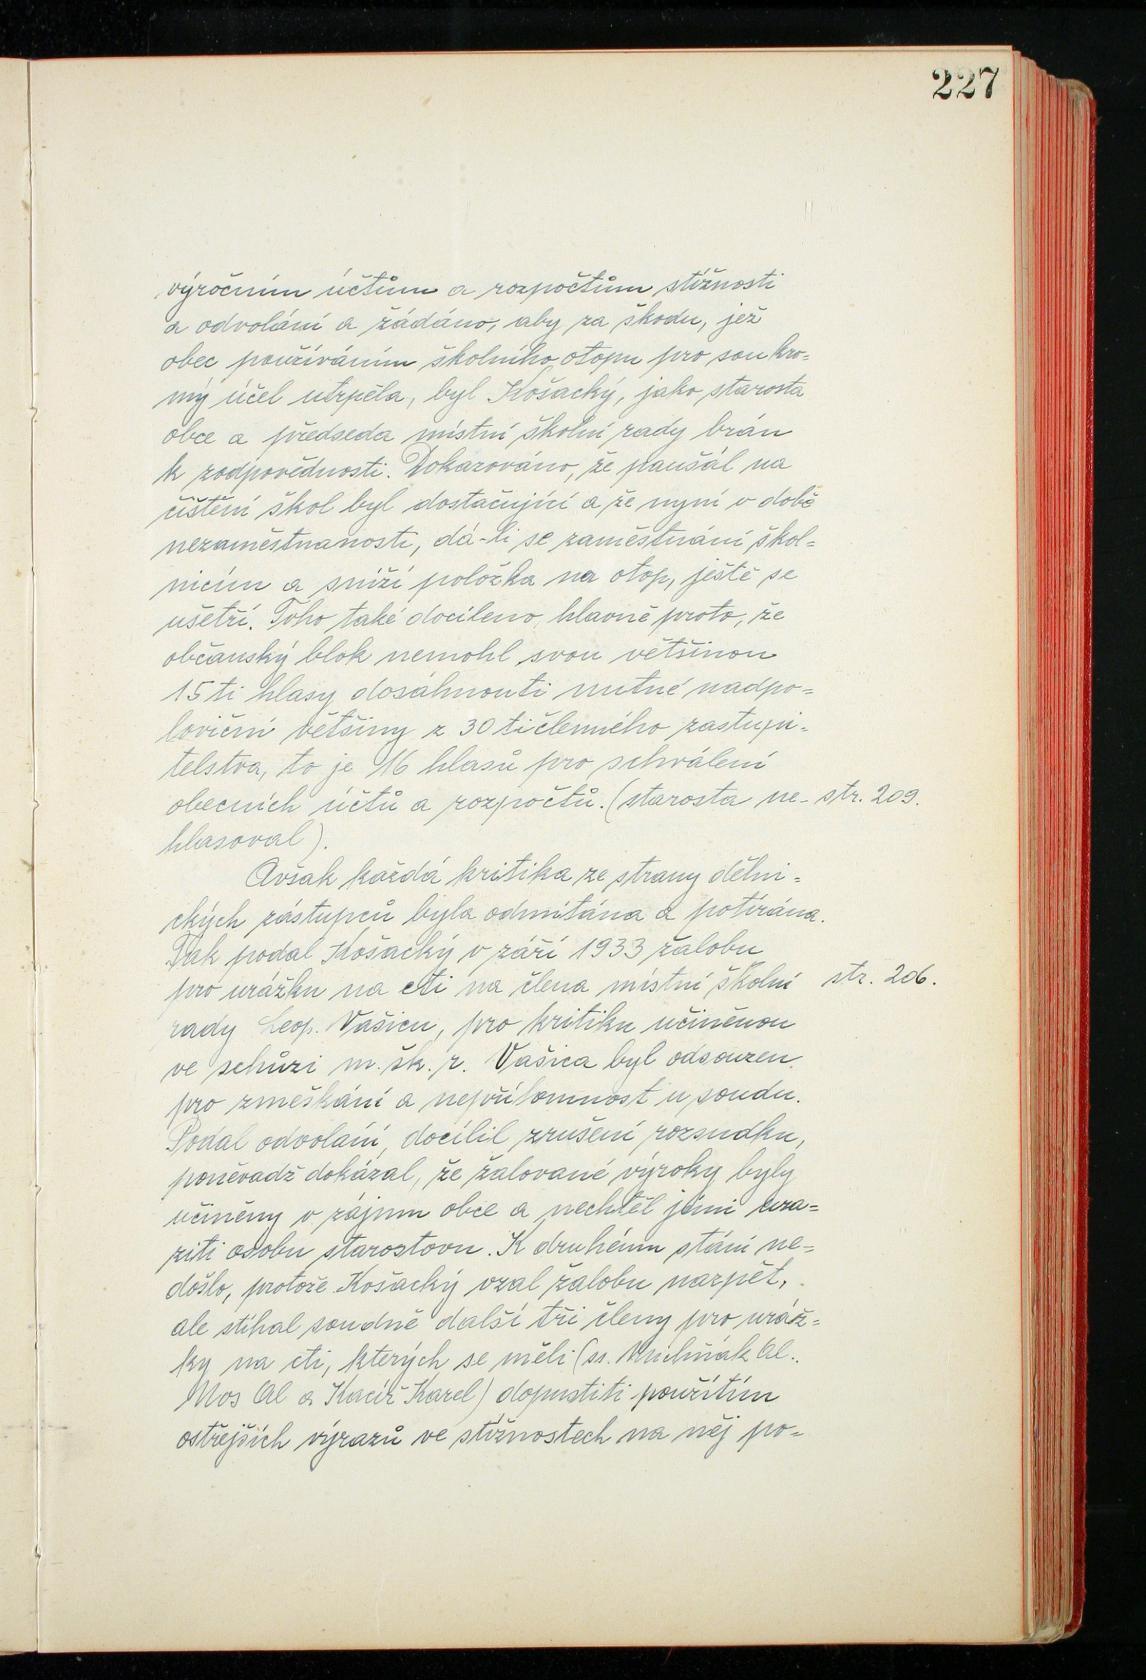 227
výročním účtům a rozpočtům stížnosti
a odvolání a žádáno, aby za škodu, jež
obec používáním školního otopu pro soukro=
mý účel utrpěla, byl Košacký, jako starosta
obce a předseda místní školní rady brán
k zodpovědnosti. Dokazováno, že paušál na
čištění škol byl dostačující a že nyní v době
nezaměstnanosti, dá-li se zaměstnání škol=
nicím a sníží položka na otop, ještě se
ušetří. Toho také docíleno hlavně proto, že
občanský blok nemohl svou většinou
15ti hlasy dosáhnouti nutné nadpo=
loviční většiny z 30tičlenného zastupi=
telstva, to je 16 hlasů pro schválení
obecních účtů a rozpočtů. (starosta ne- str. 209.
hlasoval).
Avšak každá kritika ze strany dělni=
ckých zástupců byla odmítána a potírána.
Tak podal Košacký v září 1933 žalobu
pro urážku na cti na člena místní školní str. 206.
rady Leop. Vašicu, pro kritiku učiněnou
ve schůzi m. šk. r. Vašica byl odsouzen
pro zmeškání a nepřítomnost u soudu.
Podal odvolání, docílil zrušení rozsudku,
poněvadž dokázal, že žalované výroky byly
učiněny v zájmu obce a nechtěl jimi ura=
ziti osobu starostovu. K druhému stání ne=
došlo, protože Košacký vzal žalobu nazpět,
ale stíhal soudně další tři členy pro uráž=
ky na cti, kterých se měli (ss. Michňák Al.
Mos Al a Kacíř Karel) dopustiti použitím
ostřejších výrazů ve stížnostech na něj po=